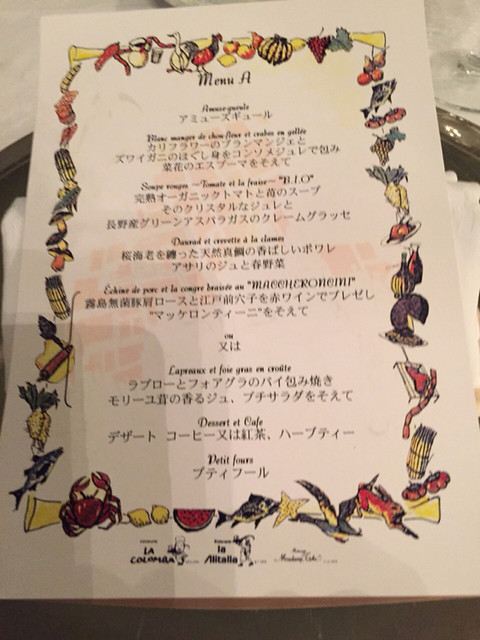 Menu A
Amuse-gueule
アミューズギュール
Blanc manger de chou-fleur et crabes en gelée
カリフラワーのブランマンジェと
ズワイガニのほぐし身をコンソメジュレで包み
菜花のエスプーマをそえて
Soupe rouges ~Tomate et la fraise~ "B.I.O"
完熟オーガニックトマトと苺のスープ
そのクリスタルなジュレと
長野産グリーンアスパラガスのクレームグラッセ
Daurad et crevette à la clames
桜海老を纏った天然真鯛の香ばしいポワレ
アサリのジュと春野菜
Échine de porc et la congre braisée au "MACCHERONCINI"
霧島無菌豚肩ロースと江戸前穴子を赤ワインでブレゼし
"マッケロンティーニ"をそえて
ou
又は
Lapreaux et foie gras en croûte
ラブローとフォアグラのパイ包み焼き
モリーユ茸の香るジュ、プチサラダをそえて
Dessert et Cafe
デザート コーヒー又は紅茶、ハーブティー
Petit fours
プティフール
LA COLOMBA
la Alitalia